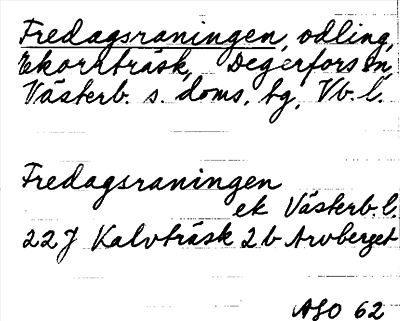 Fredagsraningen, odling,
Ekorrträsk, Degerfors sn,
Västerb. s. doms. tg, Vb. l.
Fredagsraningen
ek Västerb. l
22J Kalvträsk 2b Arvberget
ASO 62